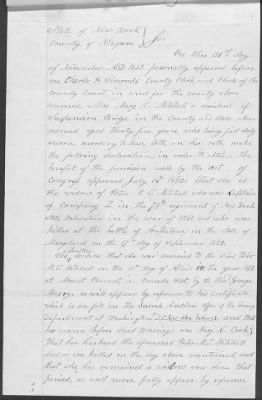 State of New York
County of Niagara } ss.
On this 21st day
of November A.D. 1862 personally appeared before
me Charles H. Symonds County Clerk and Clerk of the
County Court, in and for the county above
named, Mrs. Mary C. Mitchell a resident of
Suspension Bridge in the County and State above
named aged thirty five years, who being first duly
sworn according to law, doth on her oath make
the following declaration in order to obtain the
benefit of the provision made by the act of
Congress approved July 14th 1862: That she is
the widow of Peter Mitchell who was Captain
of Company I in the 78th regiment of New York
State Volunteers in the war of 1861 and who was
killed at the battle of Antietam in the State of
Maryland on the 17th day of September 1862.
She further declares that she was married to the said Peter
Mitchell on the day of April in the year
at Mount Pleasant in Canada West by the Rev. George
as will appear by reference to his certificate
which is on file in the Office of the
Department at Washington and that
her name before said marriage was Mary C. Cook;
That her husband the aforesaid Peter Mitchell
died or was killed on the day above mentioned and
that she has remained a widow ever since that
period, as will more fully appear by reference